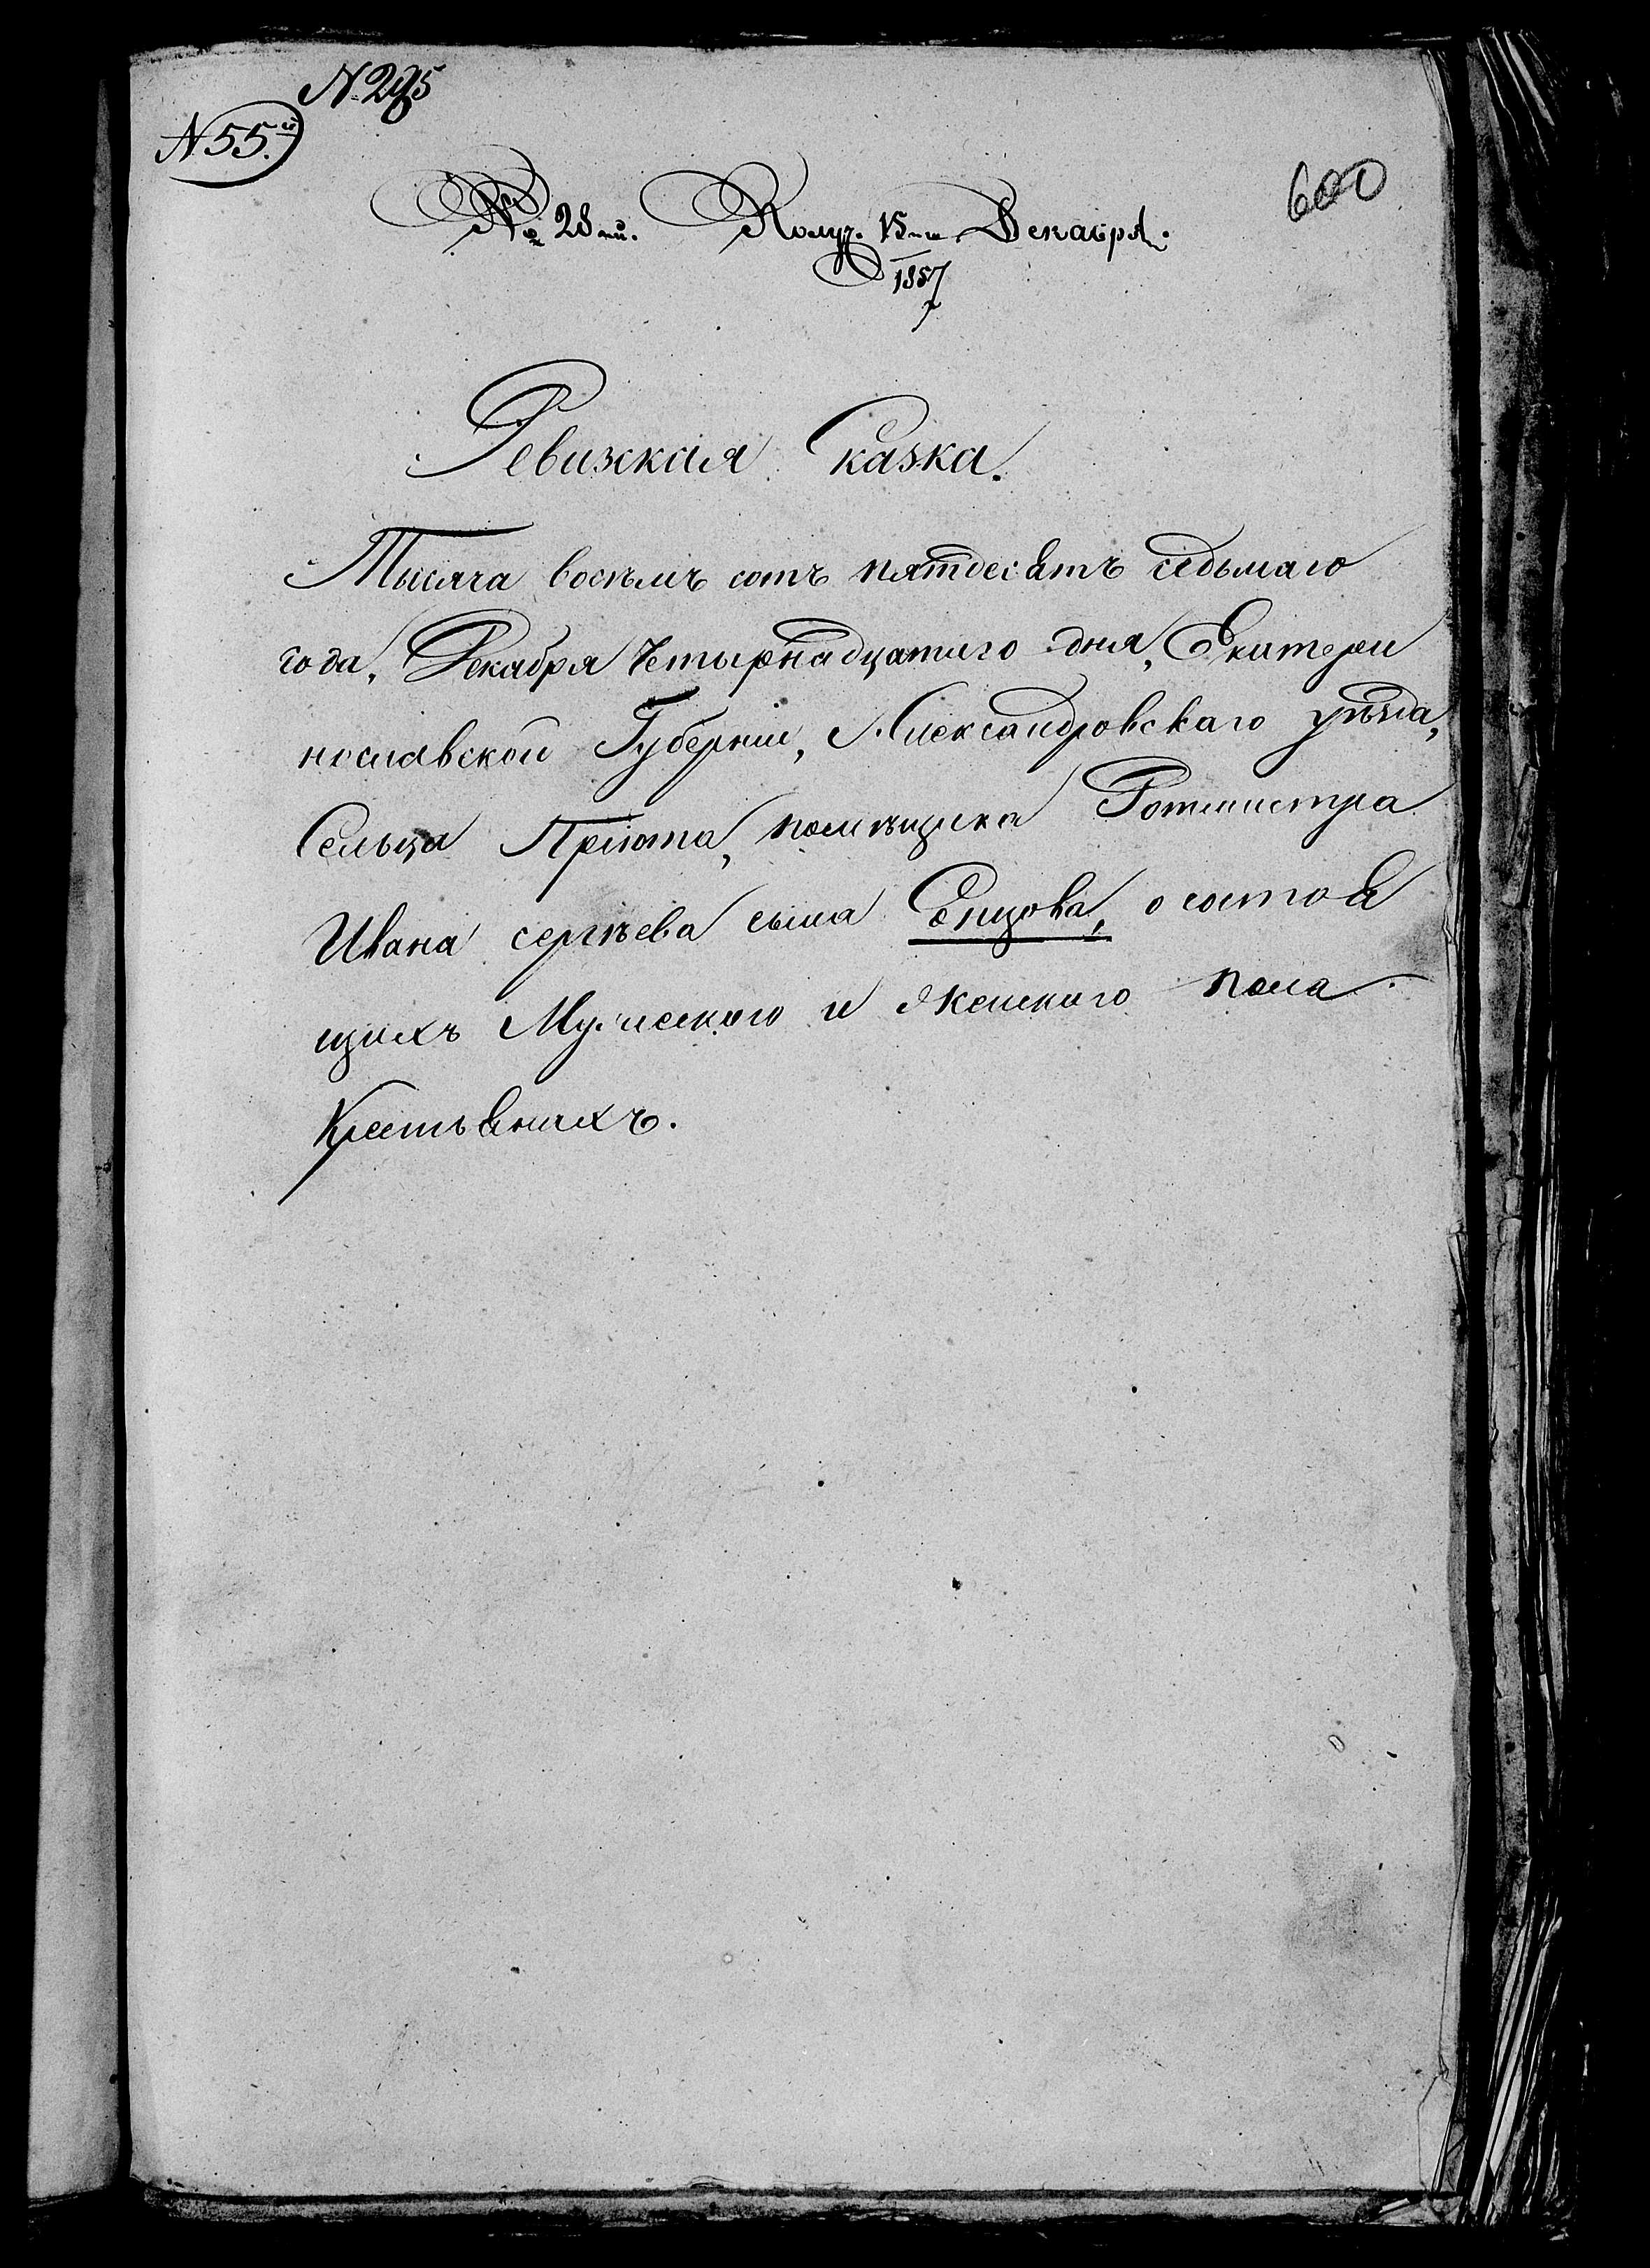 N 295
N 55.й
600
№ 28-й. Получ. 15-го Декабря.
1857
Ревизская Сказка.
Тысяча восѣмъ сотъ пятдесятъ седьмаго
года, Декабря Четырнадцатаго дня, Екатери
нославской Губерніи, Александровскаго уѣзда,
Сельца Пріюта, помѣщика Ротмистра
Ивана Сергѣева сына Енцова, о состоя
щихъ Мужескаго и Женскаго пола
Крестьянахъ.